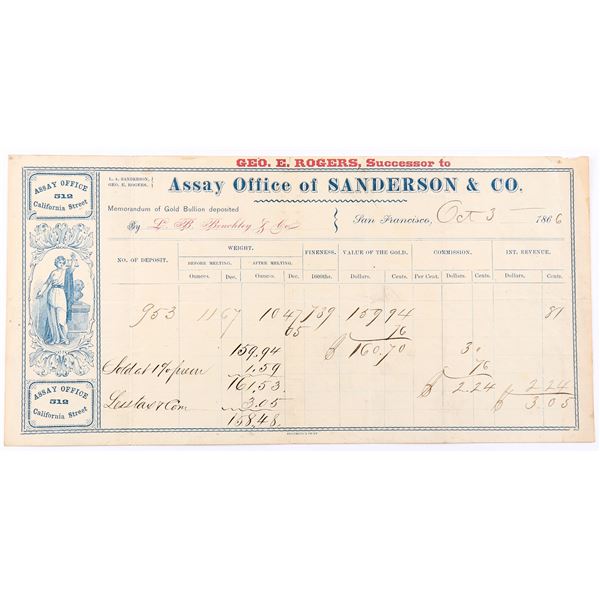 GEO. E. ROGERS, Successor to
L. A. SANDERSON,
GEO. E. ROGERS.
Assay Office of SANDERSON & CO.
ASSAY OFFICE
512
California Street
Memorandum of Gold Bullion deposited
By L. B. Benchley & Co
San Francisco, Oct 3 1866
NO. OF DEPOSIT. WEIGHT. FINENESS. VALUE OF THE GOLD. COMMISSION. INT. REVENUE.
BEFORE MELTING. AFTER MELTING.
Ounces. Dec. Ounces. Dec. 1000ths. Dollars. Cents. Per Cent. Dollars. Cents. Dollars. Cents.
953 11 67 10 47 789 159 94 81
65 76
159.94 $ 160.70 3
Sold at 1% prem 1.59 76
161.53. $ 2.24 2.24
Less tax & Com 3.05 $ 3.05
158.48.
ASSAY OFFICE
512
California Street